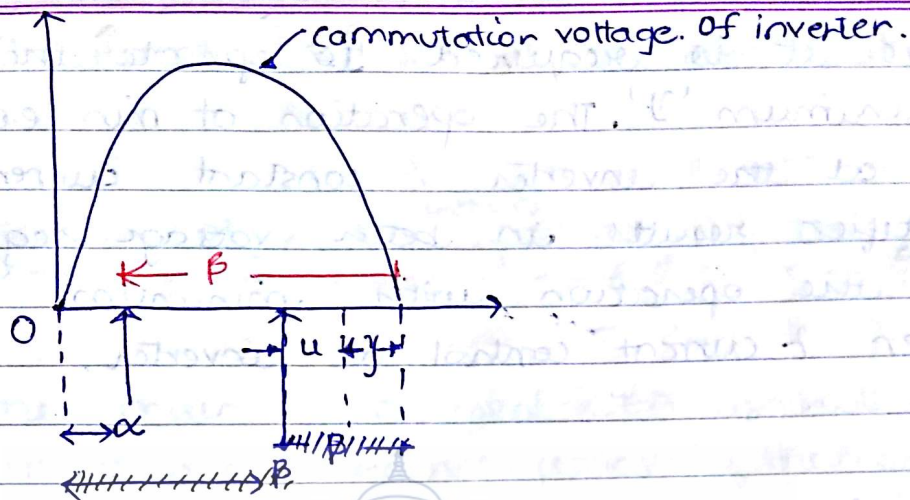 commutation voltage. Of inverter.
β
O
u γ
α
β
β